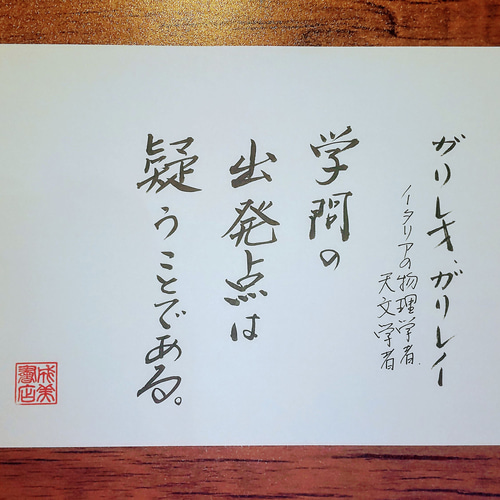 ガリレオ・ガリレイ
イタリアの物理学者、
天文学者
学問の
出発点は
疑うことである。
成美
書店